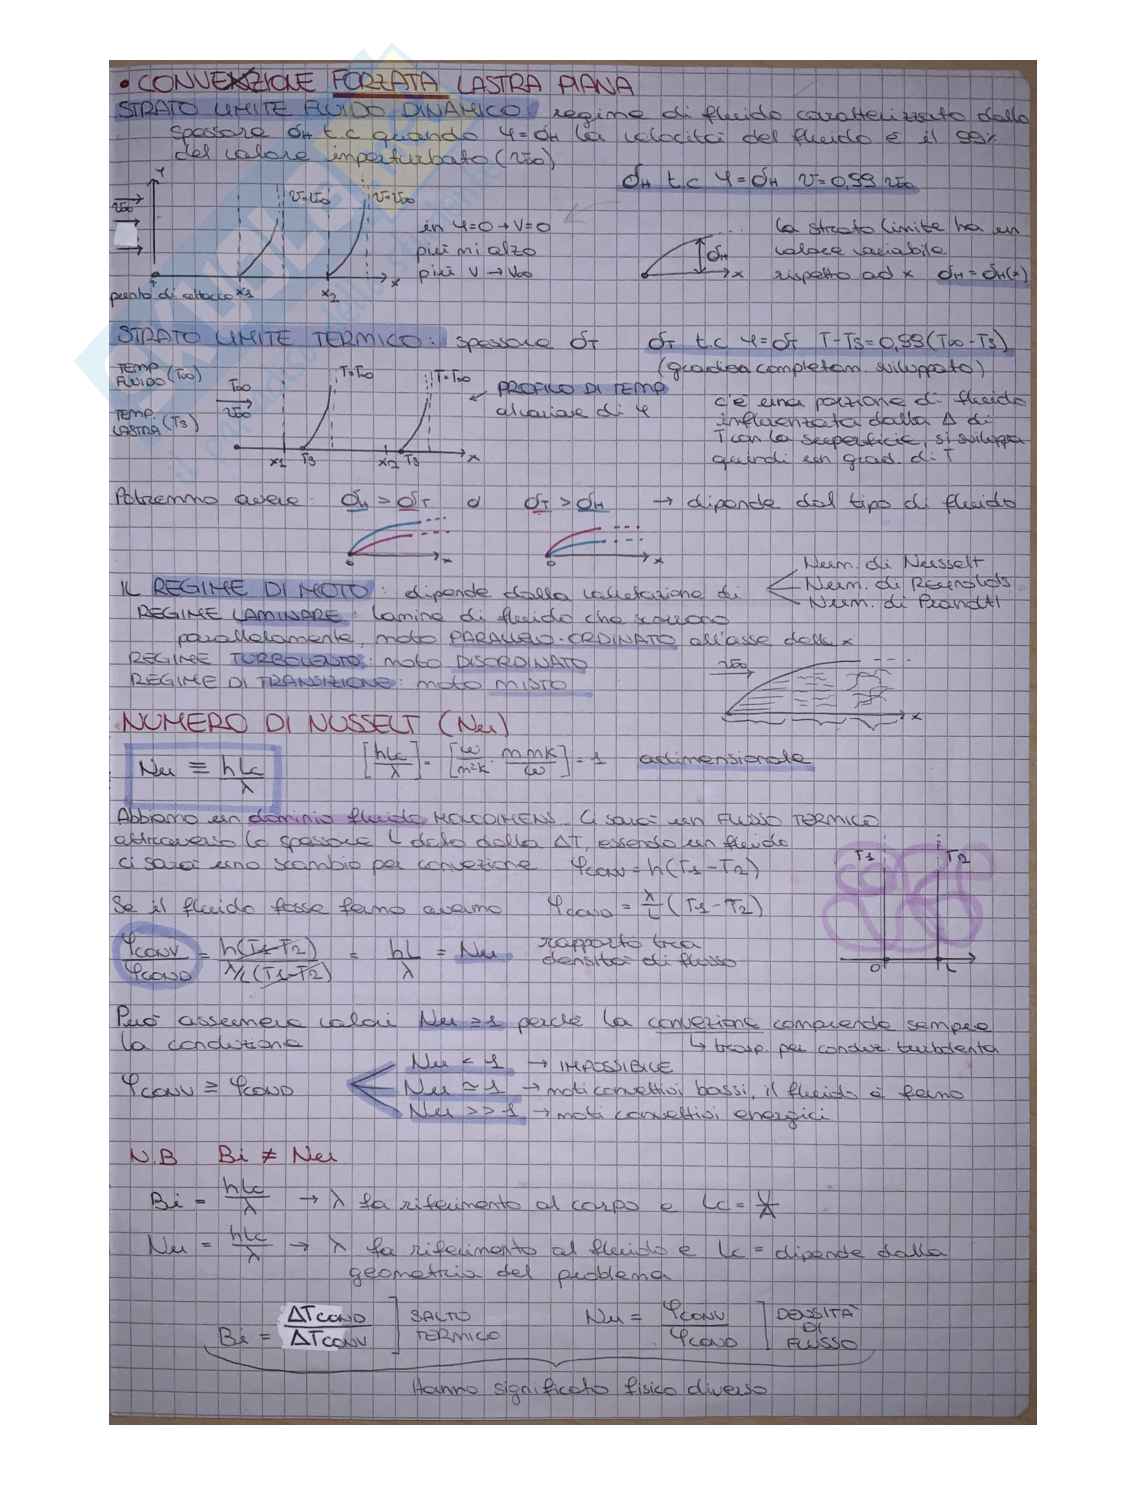 • CONVEZIONE FORZATA LASTRA PIANA
STRATO LIMITE FLUIDO DINAMICO: regime di fluido caratterizzato dallo
spessore δH t.c quando y=δH la velocità del fluido è il 99%
del valore imperturbato (v∞)
δH t.c y=δH v=0,99 v∞
y
v∞
v=v∞
v=v∞
in y=0 → v=0
più mi alzo
più v → v∞
x
punto di attacco
x1
x2
δH
x
lo strato limite ha un
valore variabile
rispetto ad x δH = δH(x)
STRATO LIMITE TERMICO: spessore δT δT t.c y=δT T-Ts=0,99(T∞-Ts)
(quando è completam. sviluppato)
TEMP FLUIDO (T∞)
TEMP. LASTRA (Ts)
T∞
v∞
T=T∞
T=T∞
x1 Ts
x2 Ts
x
← PROFILO DI TEMP
al variare di y
c'è una porzione di fluido
influenzata dalla Δ di
T con la superficie, si sviluppa
quindi un grad. di T
Potremmo avere: δH > δT o δT > δH → dipende dal tipo di fluido
0 x
0 x
IL REGIME DI MOTO: dipende dalla valutazione di
Num. di Nusselt
Num. di Reynolds
Num. di Prandtl
REGIME LAMINARE: lamine di fluido che scorrono
parallelamente, moto PARALLELO-ORDINATO all'asse delle x
REGIME TURBOLENTO: moto DISORDINATO
REGIME DI TRANSIZIONE: moto MISTO
v∞
x
NUMERO DI NUSSELT (Nu)
Nu ≡ hLc/λ
[hLc/λ] = [W/m²K · m mK/W] = 1 adimensionale
Abbiamo un dominio fluido MONODIMENS. Ci sarà un FLUSSO TERMICO
attraverso lo spessore L dato dalla ΔT, essendo un fluido
ci sarà uno scambio per convezione φCONV = h(T1-T2)
T1
T2
0
L
Se il fluido fosse fermo avremo φCOND = λ/L (T1-T2)
φCONV/φCOND = h(T1-T2)/λ/L(T1-T2) = hL/λ = Nu rapporto tra
densità di flusso
Può assumere valori Nu ≥ 1 perché la convezione comprende sempre
la conduzione
↳ trasp. per conduz. turbolenta
φCONV ≥ φCOND
Nu < 1 → IMPOSSIBILE
Nu ≃ 1 → moti convettivi bassi, il fluido è fermo
Nu >> 1 → moti convettivi energici
N.B Bi ≠ Nu
Bi = hLc/λ → λ fa riferimento al corpo e Lc = V/A
Nu = hLc/λ → λ fa riferimento al fluido e Lc = dipende dalla
geometria del problema
Bi = ΔTCOND/ΔTCONV ] SALTO TERMICO
Nu = φCONV/φCOND ] DENSITÀ DI FLUSSO
Hanno significato fisico diverso